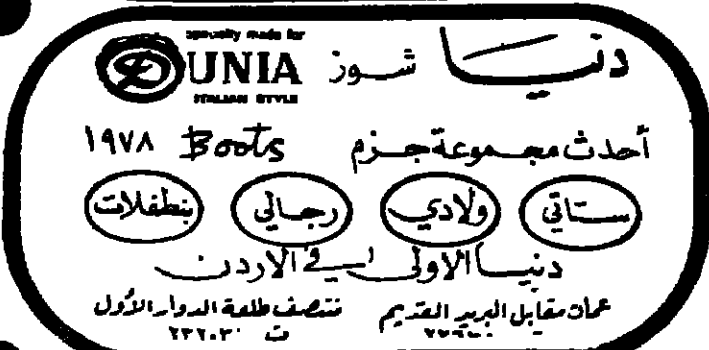 دنيا شوز
specially made for
DUNIA
ITALIAN STYLE
أحدث مجموعة جزم Boots ١٩٧٨
ستاتي ولادي رجالي بنطفلات
دنيا الاولى في الاردن
عمان مقابل البريد القديم منتصف طلعة الدوار الأول
ت